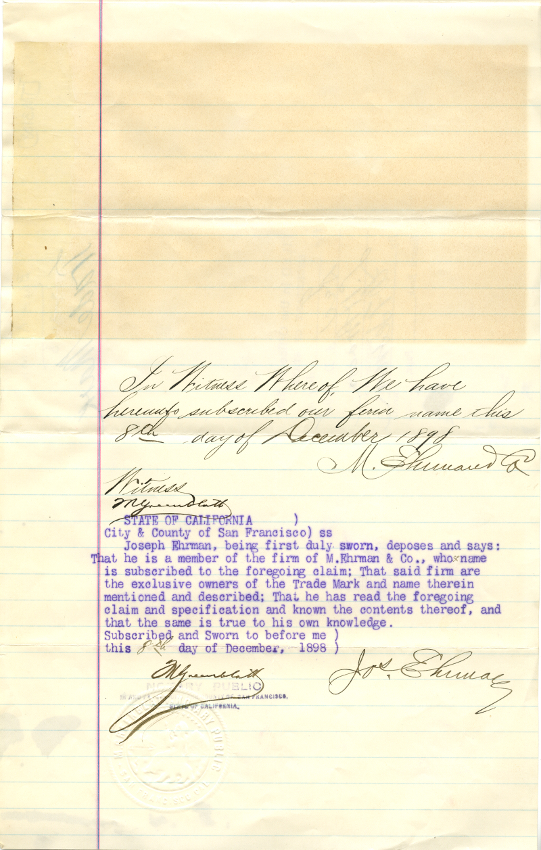 In Witness Whereof, We have
hereunto subscribed our firm name this
8th day of December 1898
M. Ehrman & Co
Witness
M Greenblatt
STATE OF CALIFORNIA )
City & County of San Francisco) ss
Joseph Ehrman, being first duly sworn, deposes and says:
That he is a member of the firm of M.Ehrman & Co., who name
is subscribed to the foregoing claim; That said firm are
the exclusive owners of the Trade Mark and name therein
mentioned and described; That he has read the foregoing
claim and specification and known the contents thereof, and
that the same is true to his own knowledge.
Subscribed and Sworn to before me )
this 8th day of December, 1898 )
M Greenblatt Jos. Ehrman
PUBLIC
SAN FRANCISCO,
STATE OF CALIFORNIA.